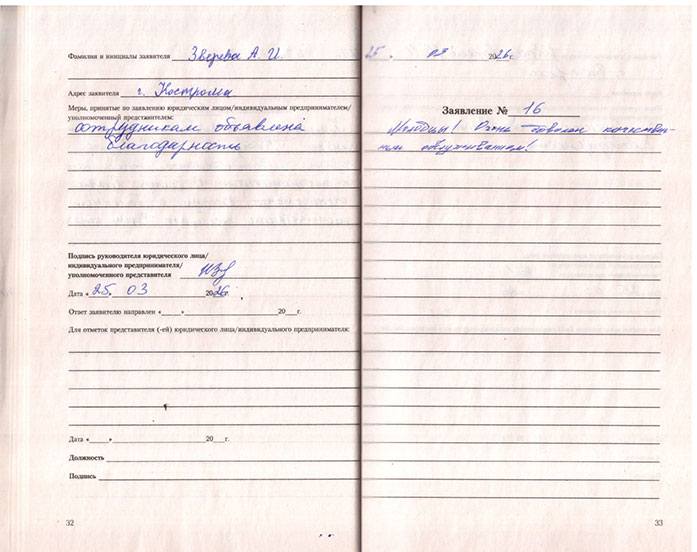 Фамилия и инициалы заявителя Зверева А. И.
Адрес заявителя г. Кострома
Меры, принятые по заявлению юридическим лицом/индивидуальным предпринимателем/
уполномоченный представителем:
сотрудникам объявлена
благодарность
Подпись руководителя юридического лица/
индивидуального предпринимателя/
уполномоченного представителя
Дата «25. 03 2026г.
Ответ заявителю направлен «____» 20___г.
Для отметок представителя (-ей) юридического лица/индивидуального предпринимателя:
Дата «____» 20___г.
Должность
Подпись
32
25. 03 2026г.
Заявление № 16
Молодцы! Очень доволен качествен-
ным обслуживанием!
33